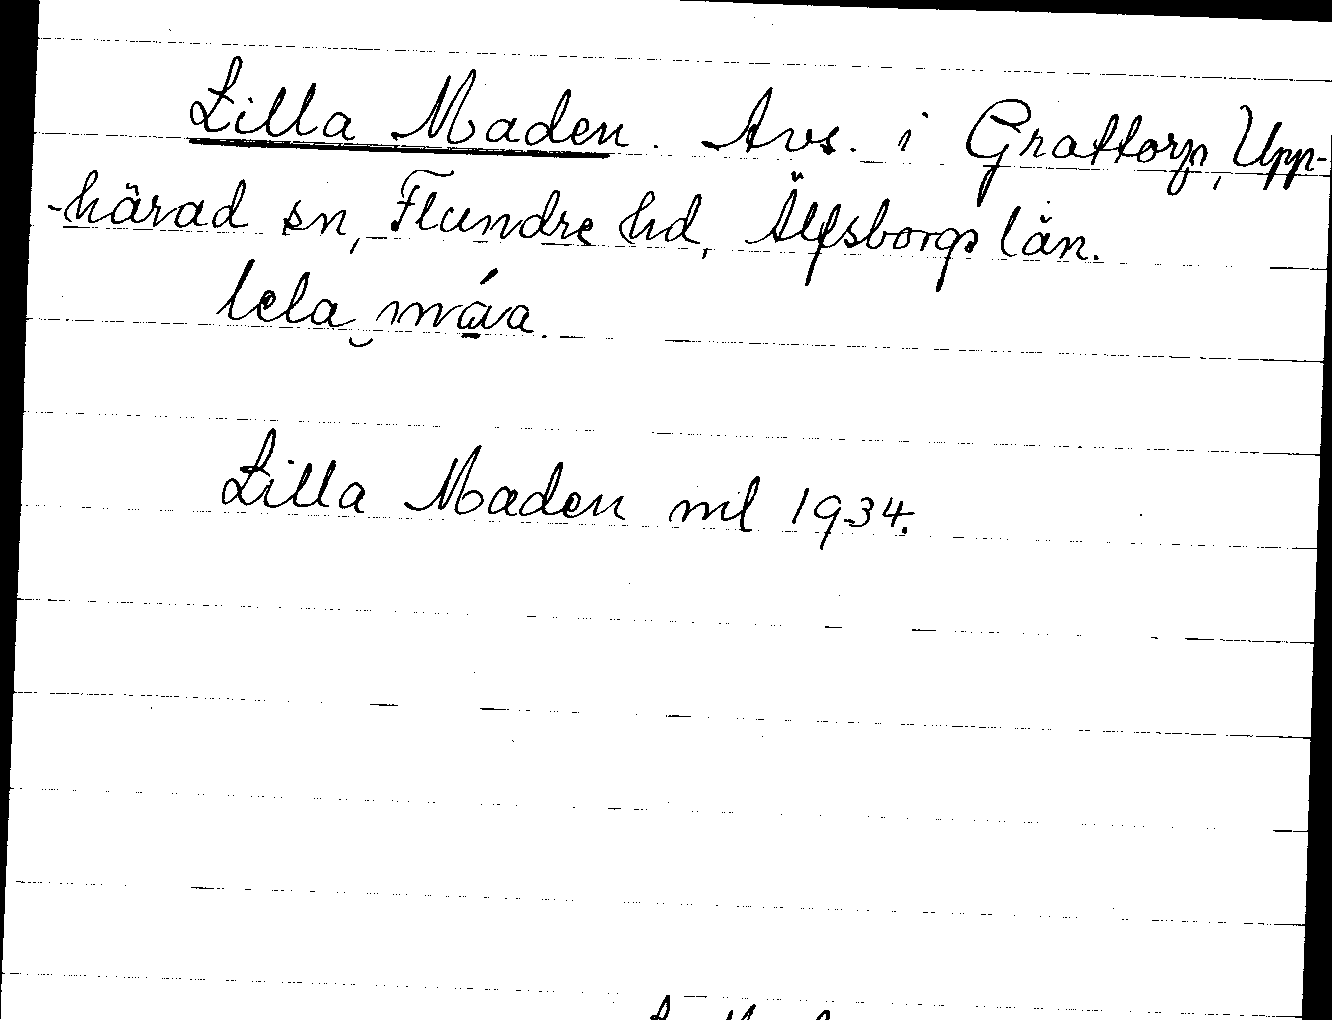 Lilla Maden. Avs. i Grattorp, Upp-
-härad sn, Flundre hd, Älfsborgs län.
lela‿máva.
Lilla Maden ml 1934.